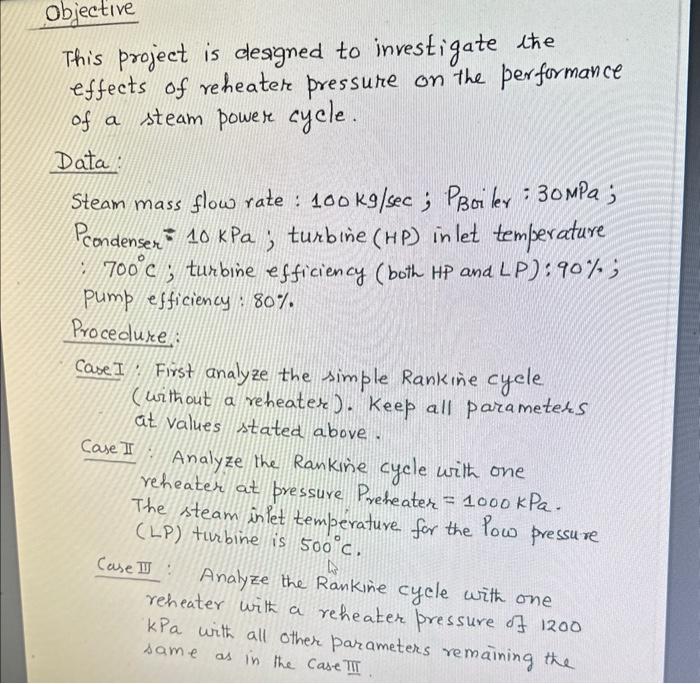 Objective
This project is designed to investigate the
effects of reheater pressure on the performance
of a steam power cycle.
Data:
Steam mass flow rate : 100 kg/sec ; PBoiler : 30 MPa ;
Pcondenser = 10 kPa ; turbine (HP) inlet temperature
: 700°C ; turbine efficiency (both HP and LP) : 90% ;
pump efficiency : 80%.
Procedure:
Case I : First analyze the simple Rankine cycle
(without a reheater). Keep all parameters
at values stated above.
Case II : Analyze the Rankine cycle with one
reheater at pressure Preheater = 1000 kPa.
The steam inlet temperature for the low pressure
(LP) turbine is 500°C.
Case III : Analyze the Rankine cycle with one
reheater with a reheater pressure of 1200
kPa with all other parameters remaining the
same as in the Case III.